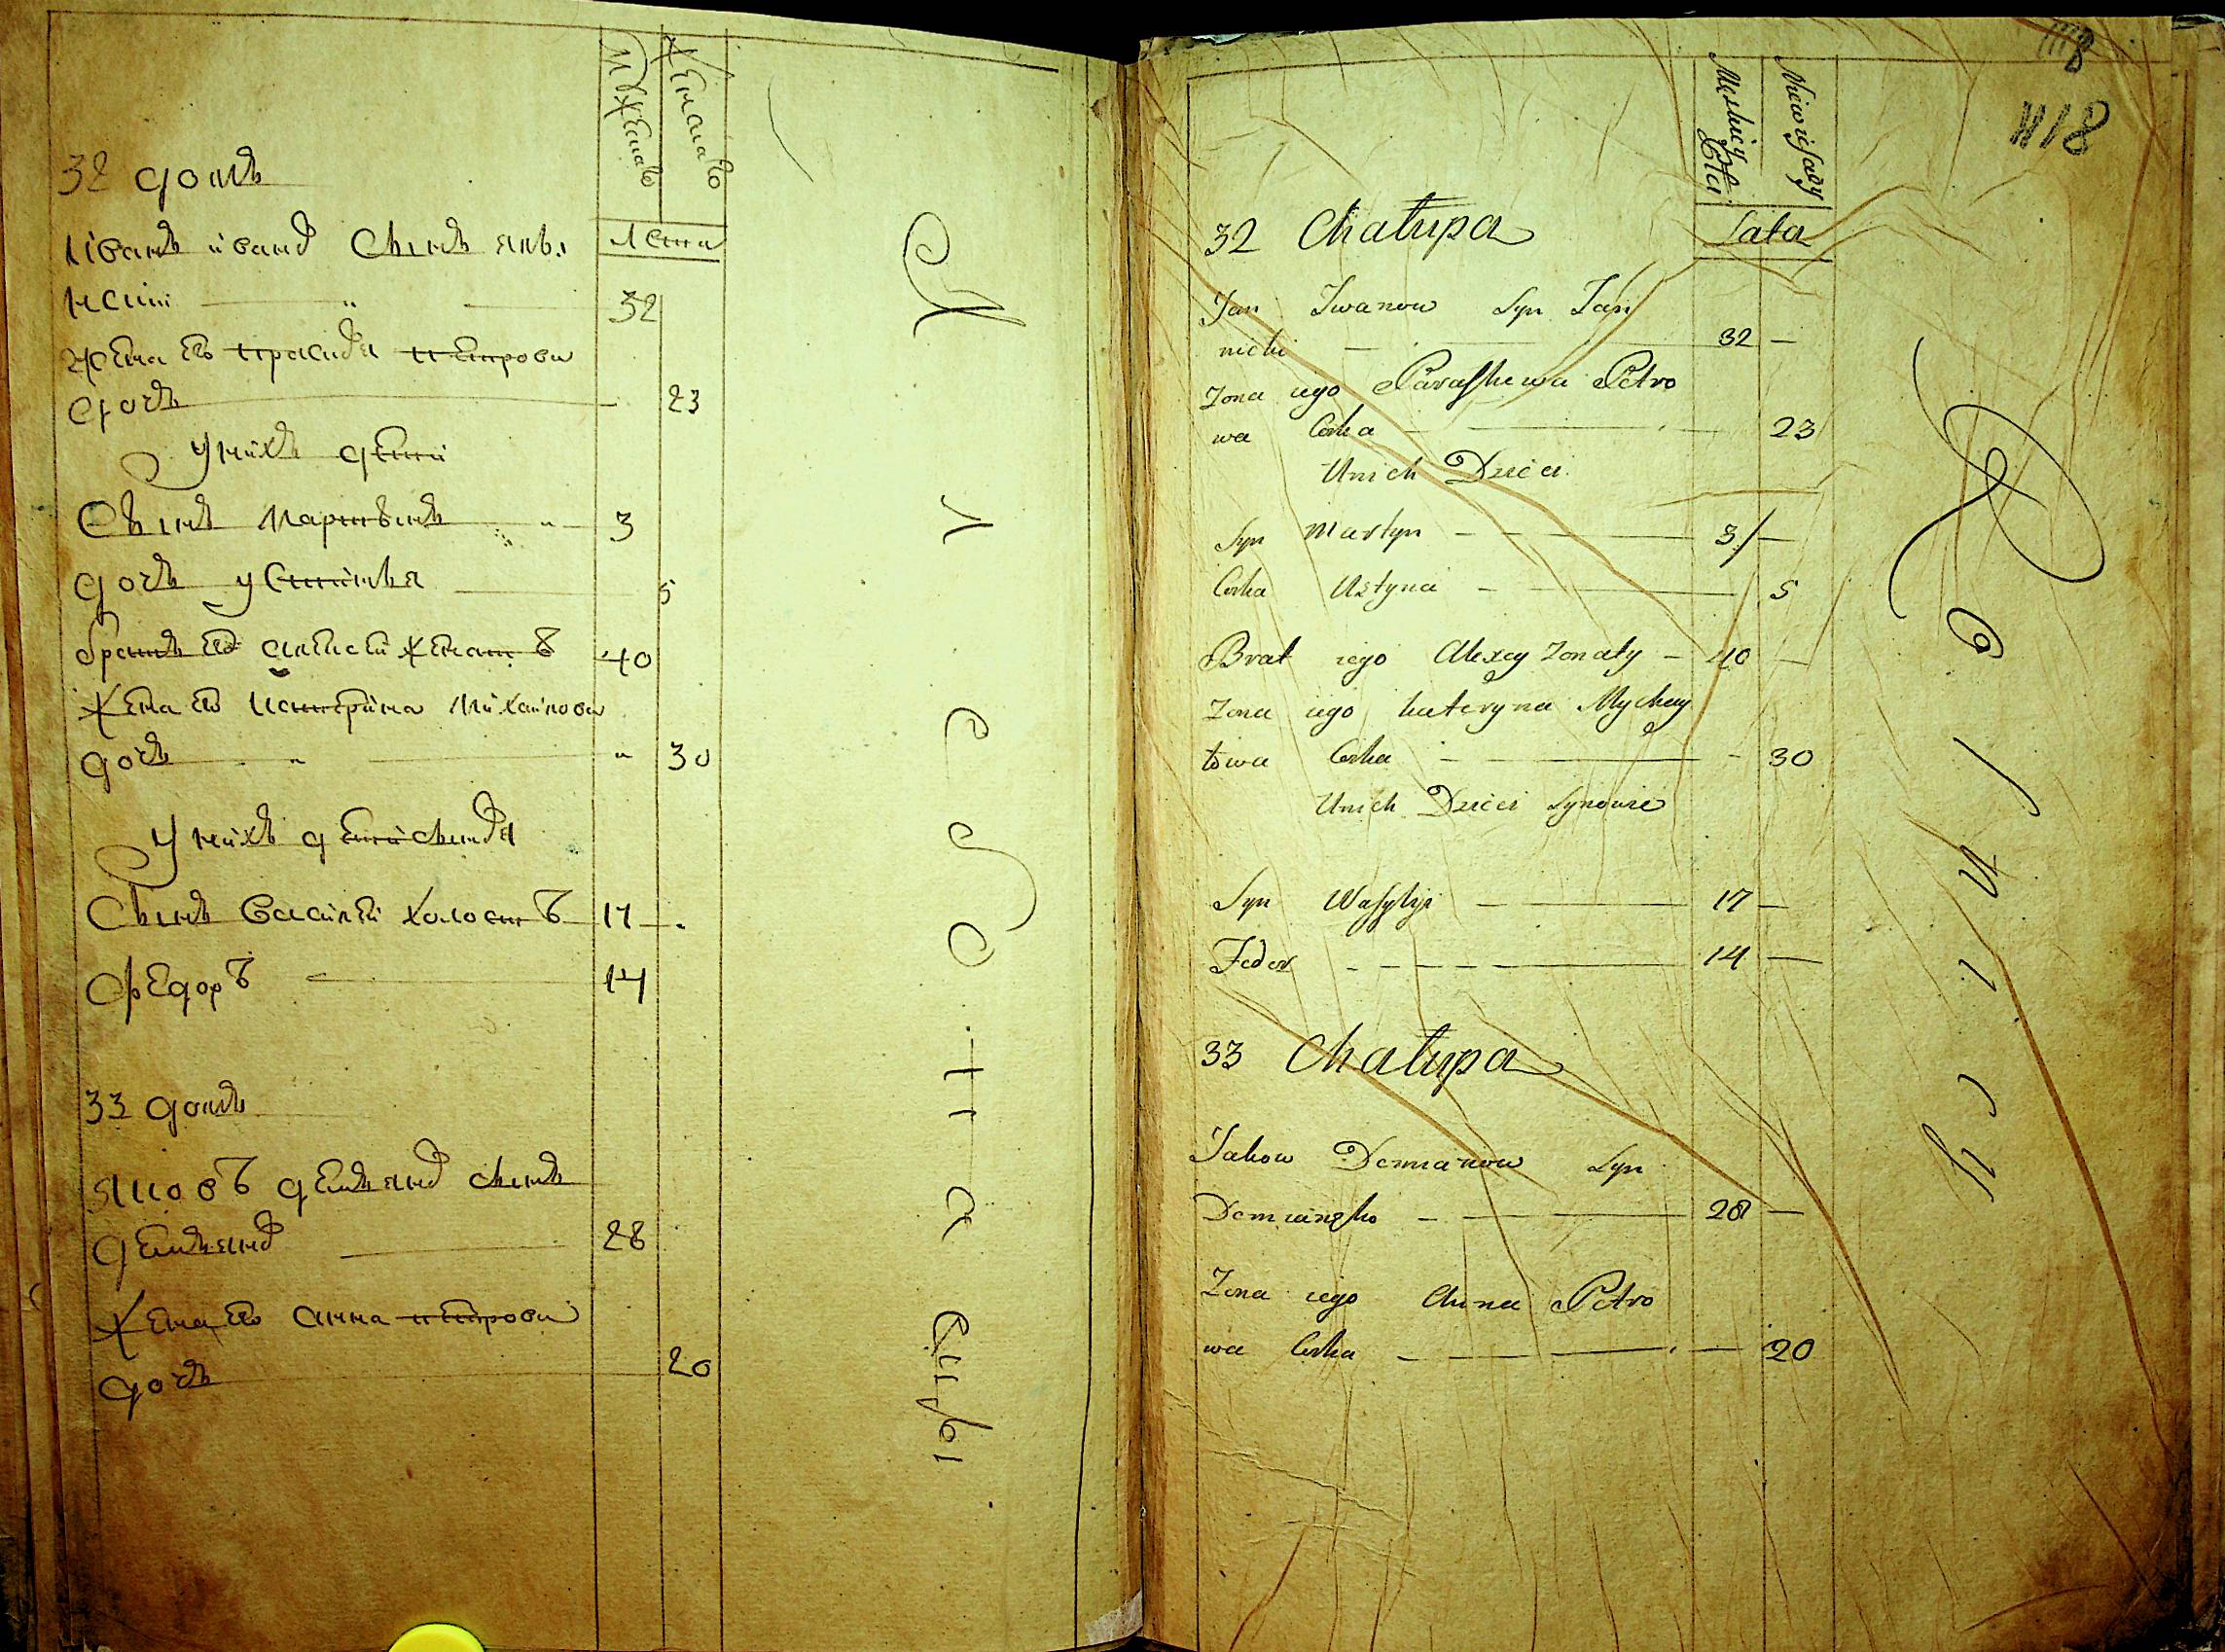 Мужеска
Женска
32 домъ
лета
Иванъ ивановъ Сынъ яны
ницкий 32
жена его прасковья петрова
дочь 23
У нихъ дети
Сынъ Мартынъ 3
дочь устинья 5
братъ его алексей женатъ 40
жена его катерина михайлова
дочь 30
У нихъ дети сыновья
Сынъ василей холостъ 17
федоръ 14
33 домъ
яковъ демьяновъ сынъ
демьяновъ 28
жена его анна петрова
дочь 20
118
Męskiey Płci
Niewiesciey
32 Chałupa
Lata
Jan Iwanow Syn Jani
nicki 32 —
Zona iego Paraskewa Petro
wa Corka 23
Unich Dzieci
Syn Martyn 3 —
Corka Ustyna 5
Brat iego Alexey Zonaty 40 —
Zona iego kateryna Mychay
łowa Corka 30
Unich Dzieci Synowie
Syn Wasylyi 17 —
Fedor 14 —
33 Chałupa
Jakow Demianow Syn
28 —
Zona iego Anna Petro
wa Corka 20